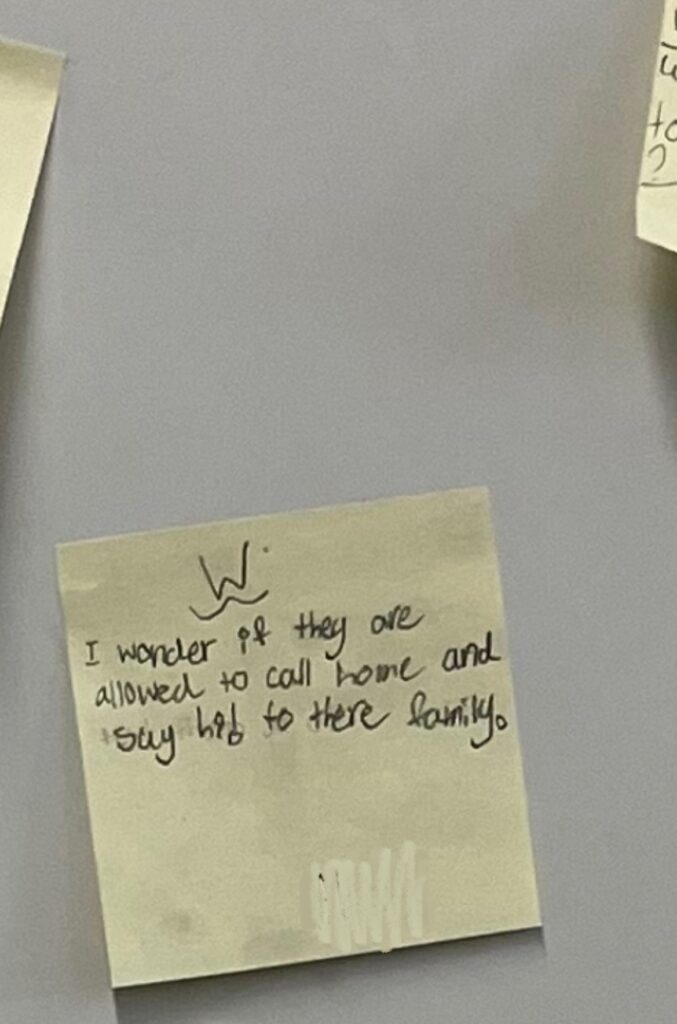 W.
I wonder if they are
allowed to call home and
say hi to there family.
to
?